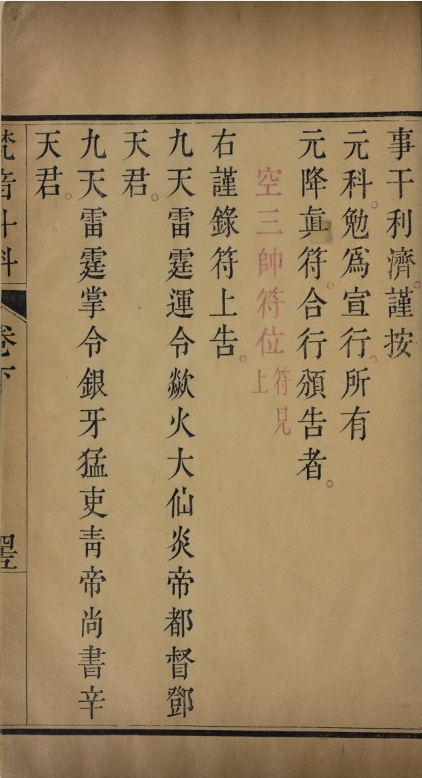 事干利濟。謹按
元科。勉爲宣行。所有
元降眞符。合行頒告者。
空三帥符位符見上
右謹錄符上告。
九天雷霆運令歘火大仙炎帝都督鄧
天君。
九天雷霆掌令銀牙猛吏青帝尚書辛
天君。
梵音斗科 卷下